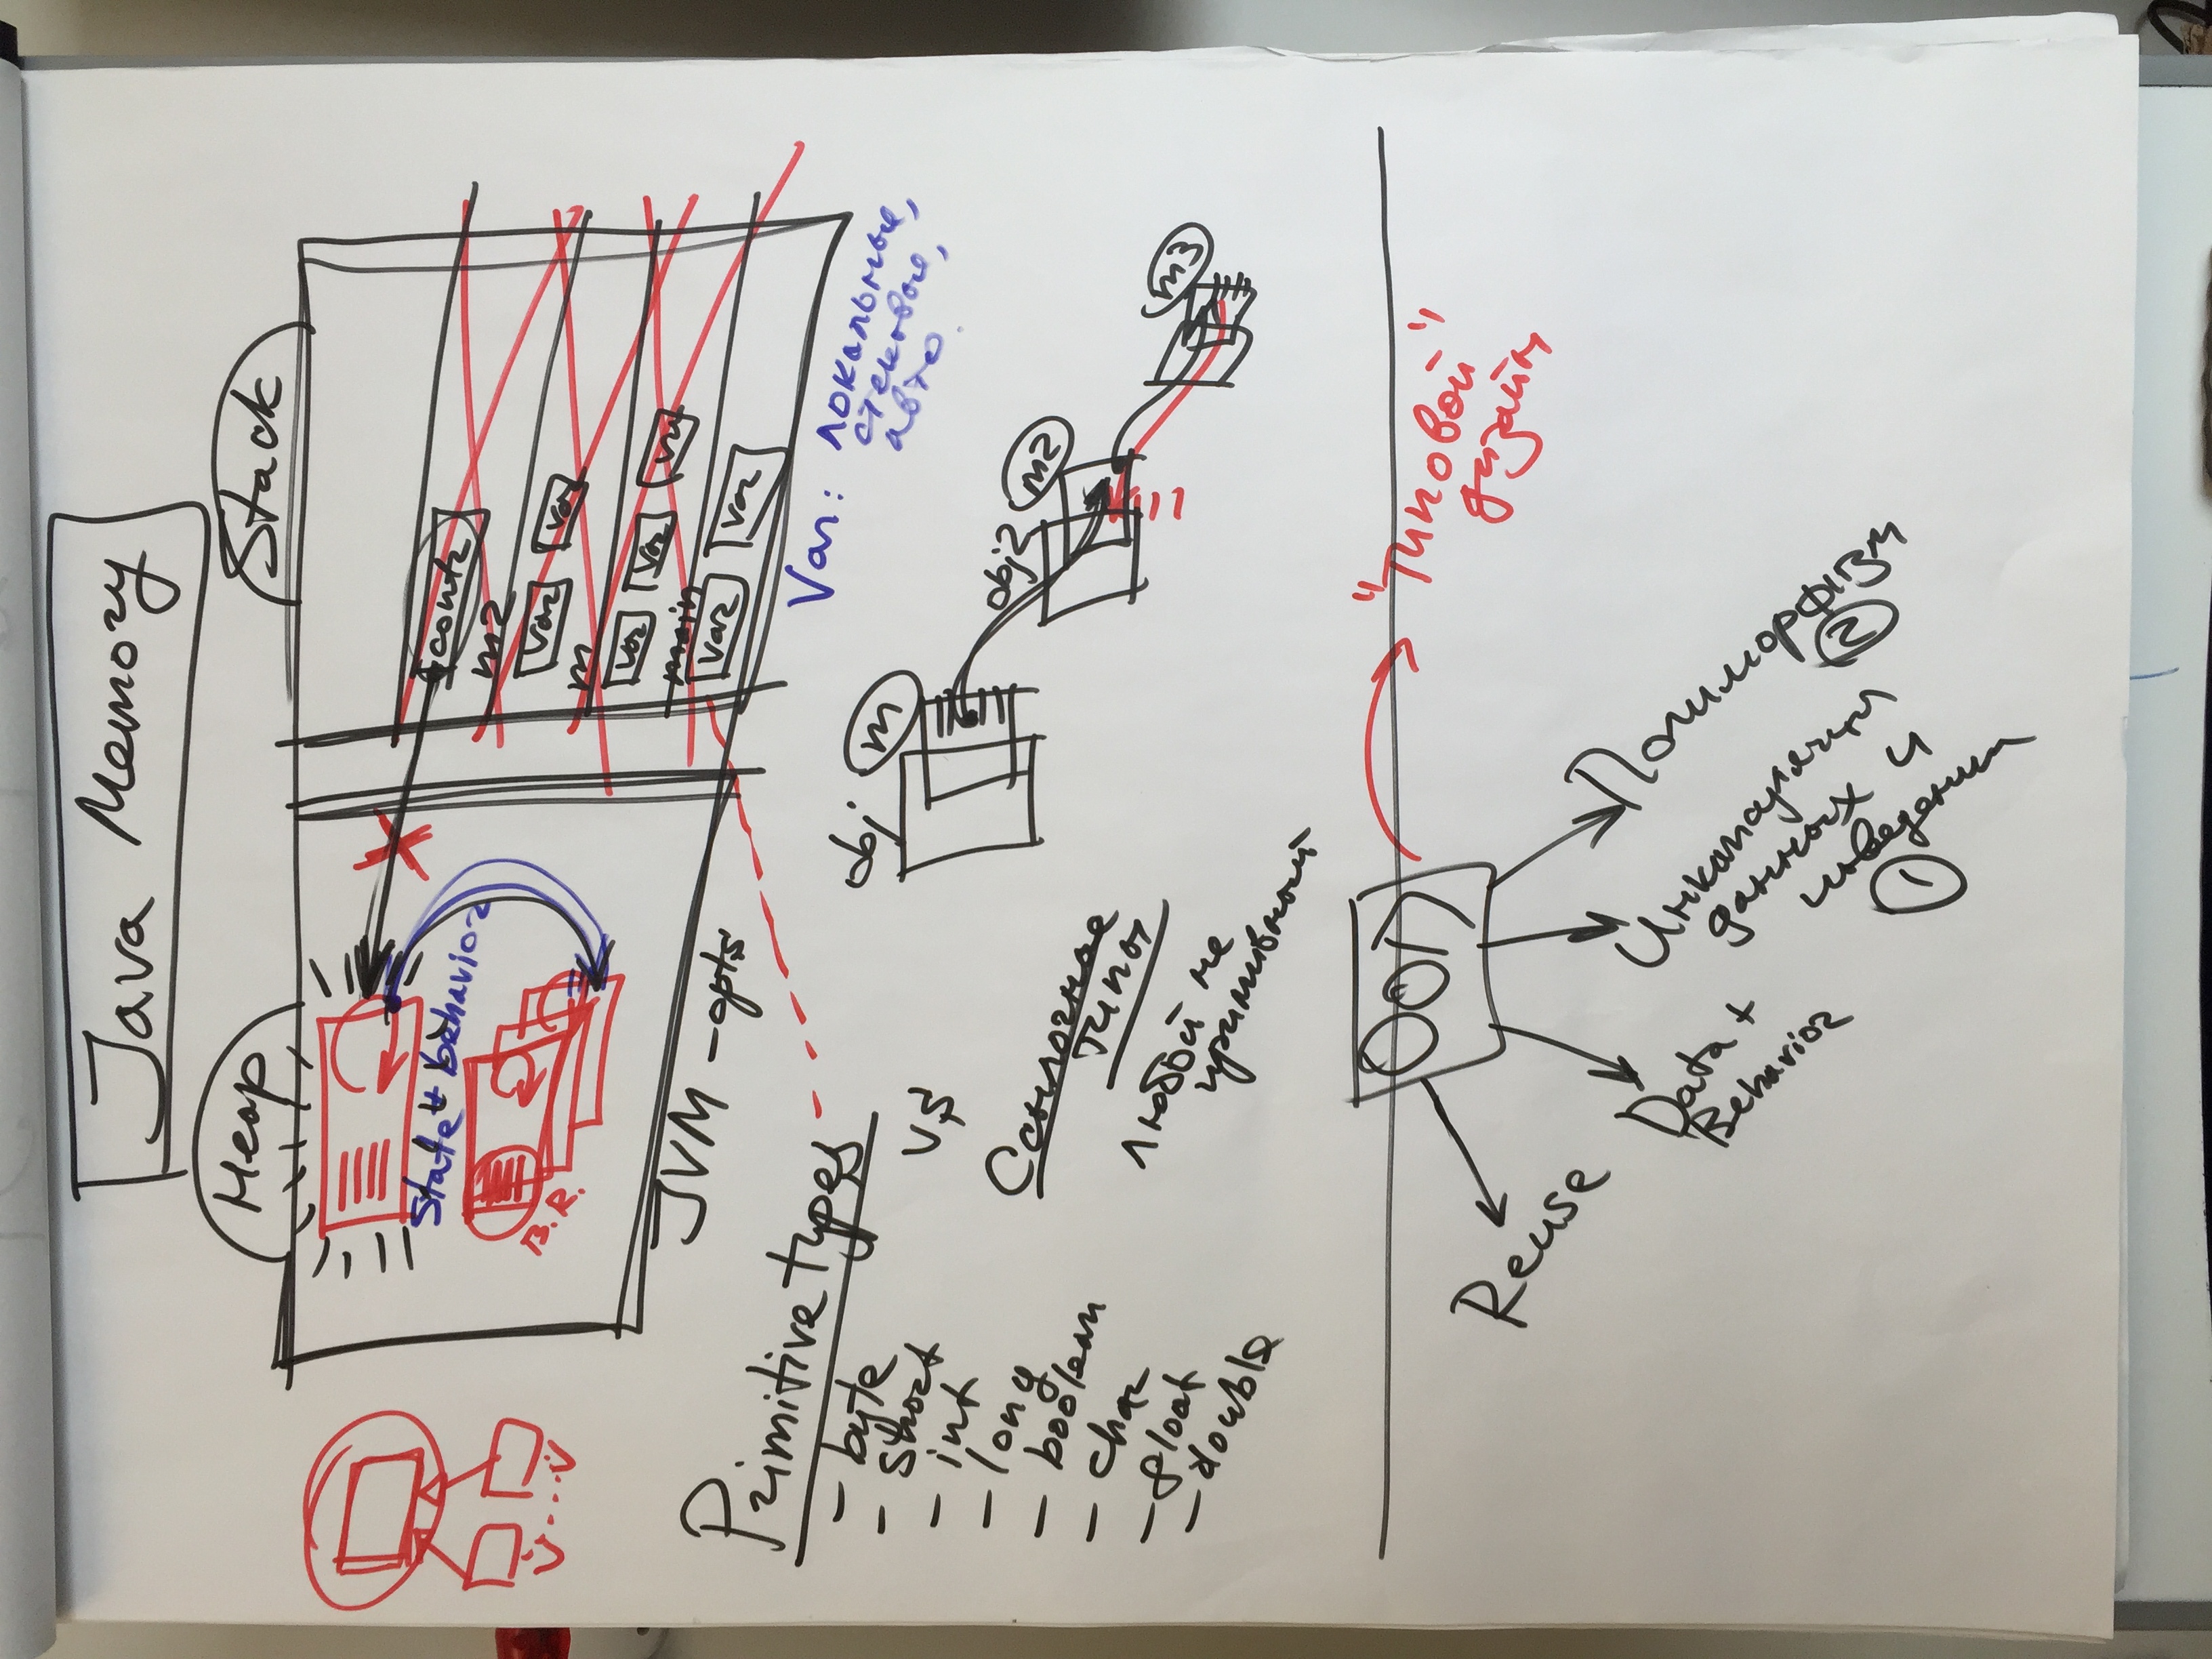 Java Memory
Heap
Stack
State + behavior
B.R.
contr
m2
Var
Var
m
Var
Var
Var
main
Var
Var
JVM -opts
Var: локальные,
стековые,
авто.
Primitive types
- byte
- short
- int
- long
- boolean
- char
- float
- double
vs
Ссылочные
типы
любой не
примивный
obj
m
obj2
m2
m3
ООП
"Типовой"
дизайн
Reuse
Data +
Behavior
Инкапсуляция
данных и
поведения
1
Полиморфизм
2